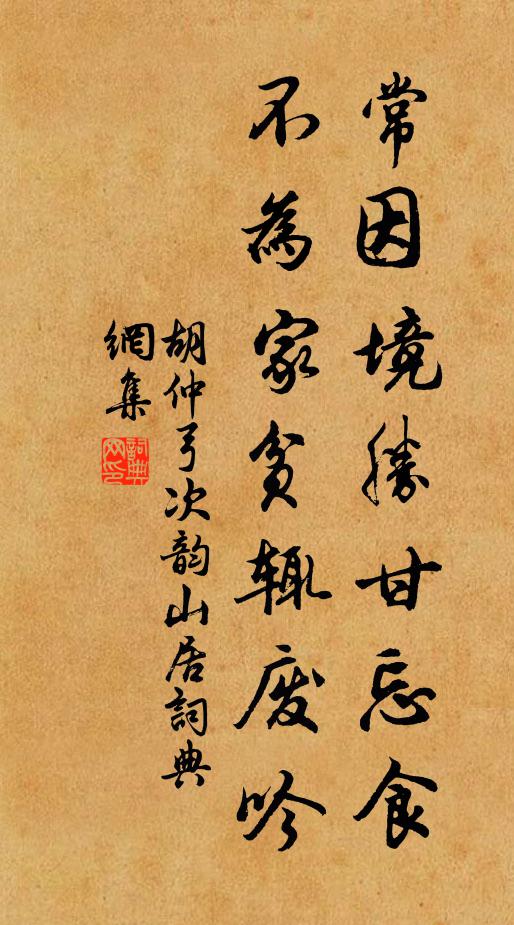 常因境勝甘忘食
不為家貧輒廢吟
胡仲弓次韵山居詞典
網集
詞典網印